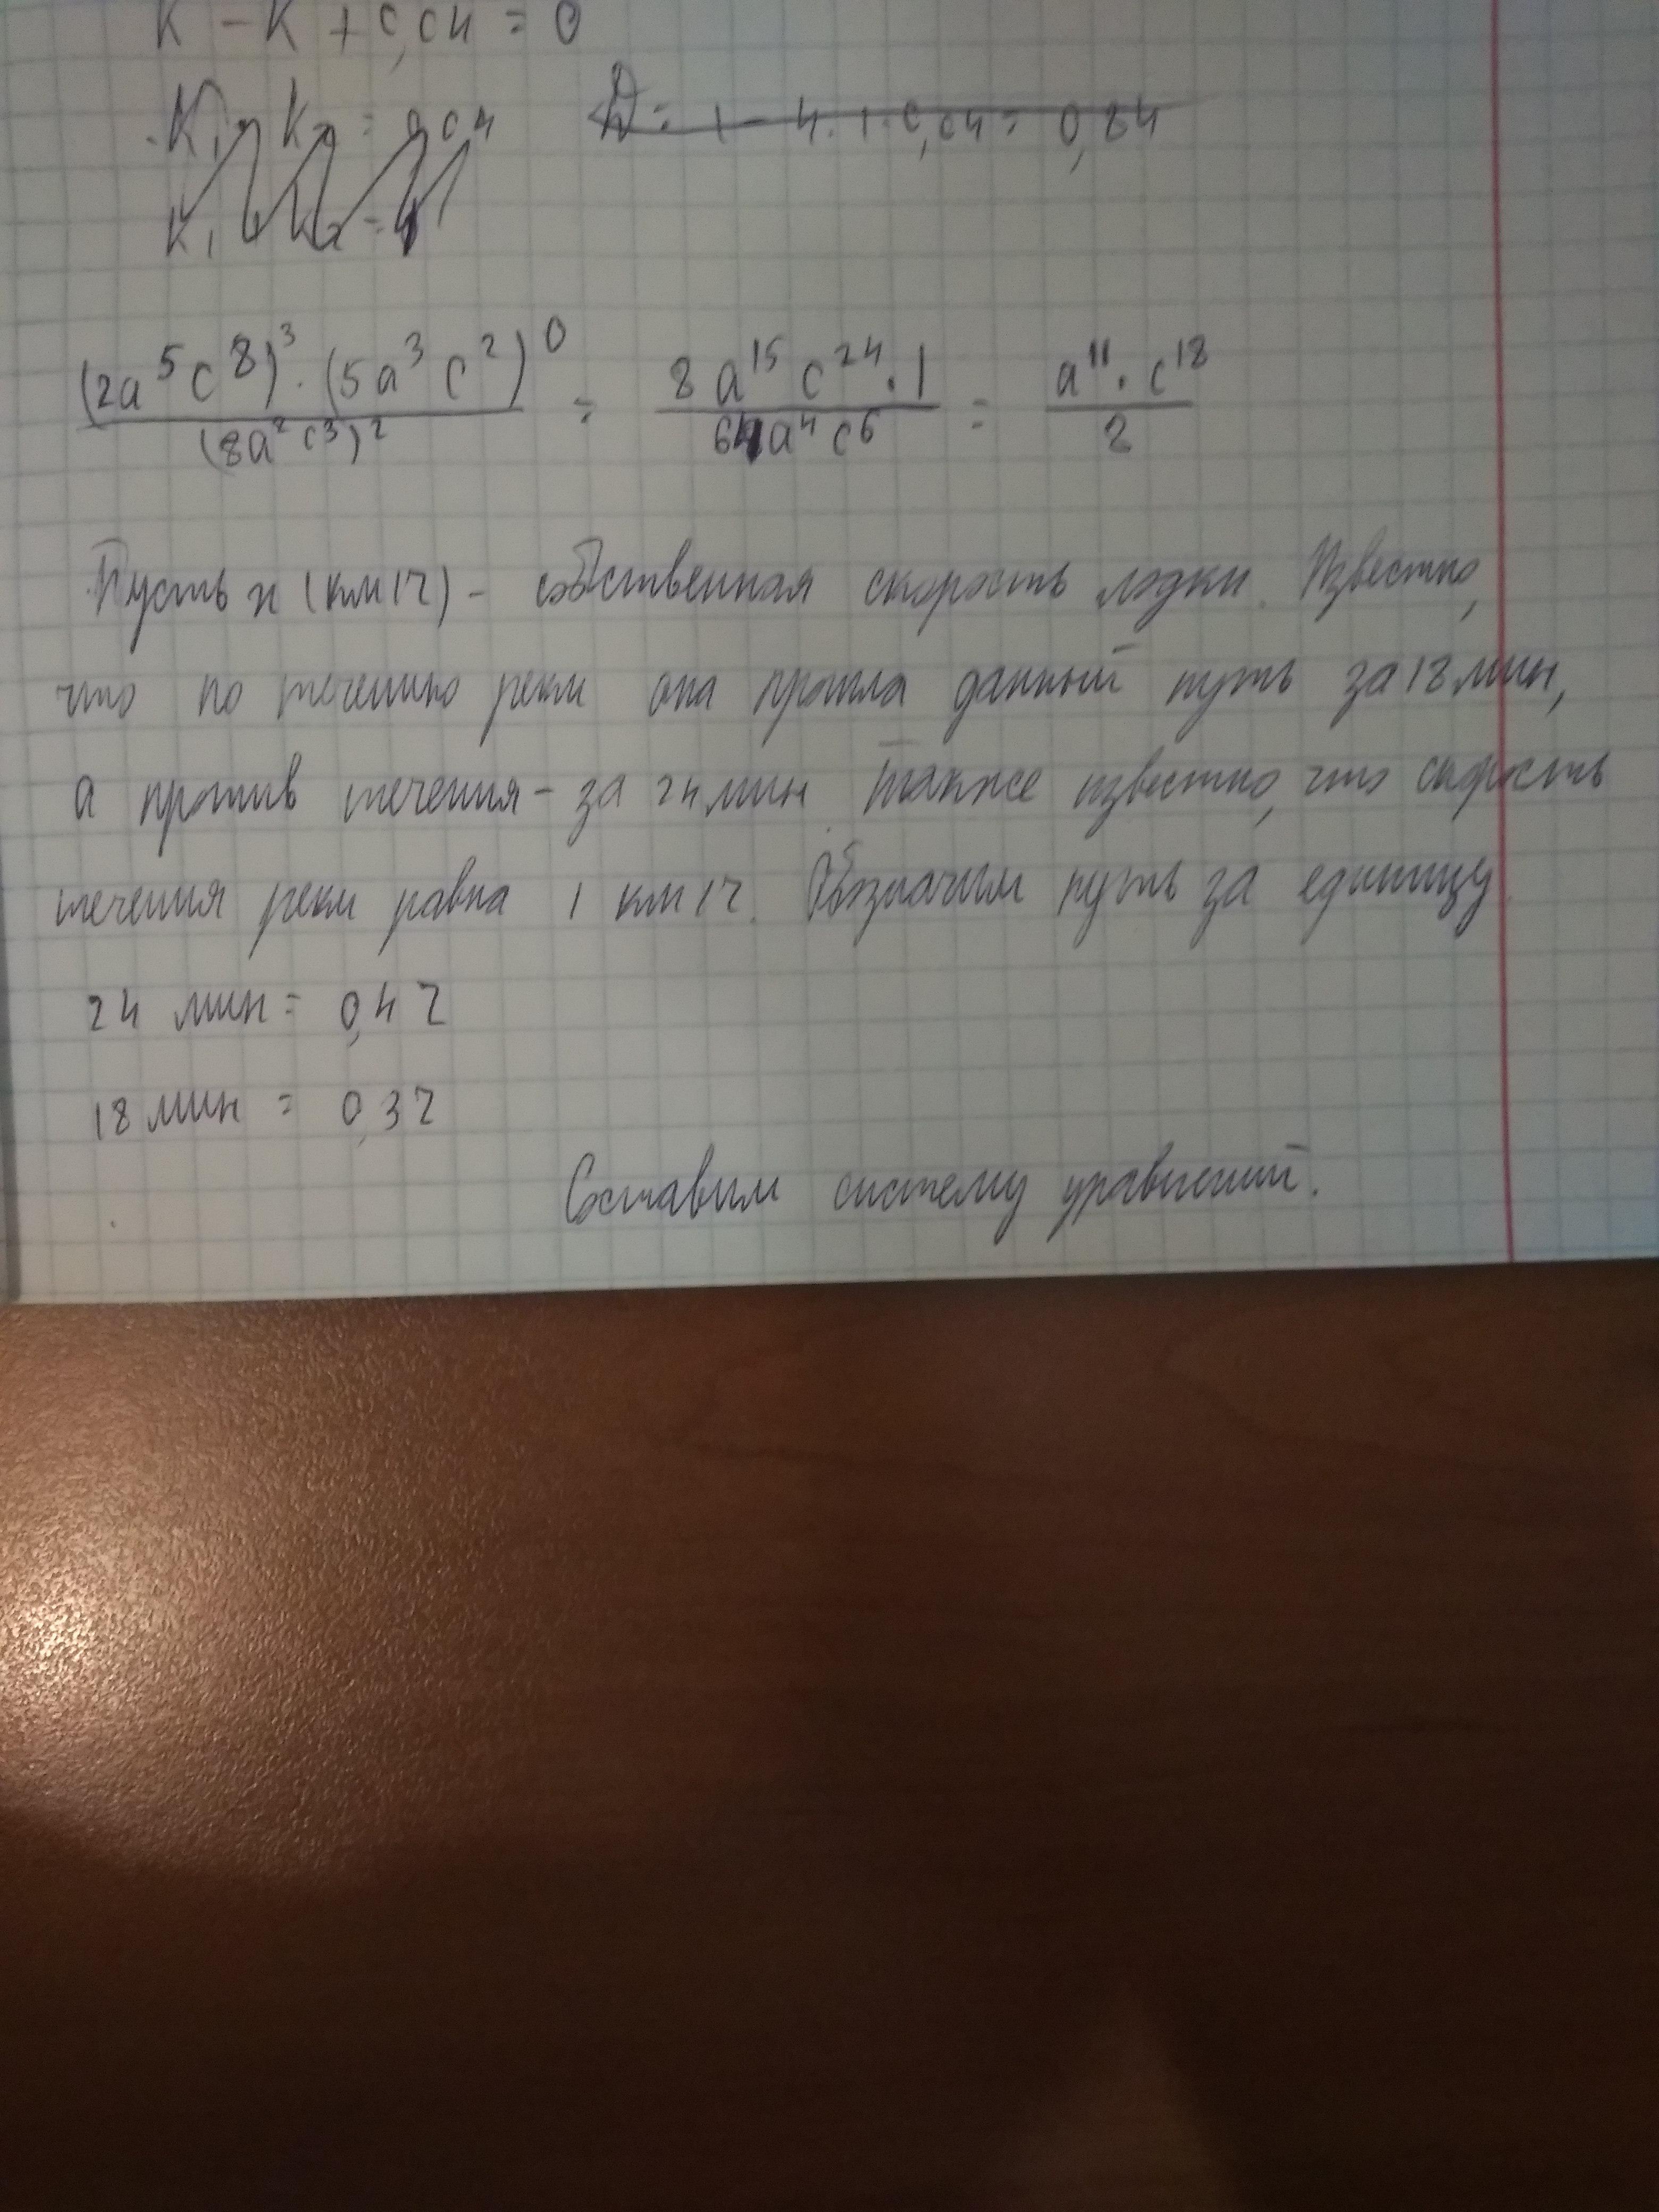 K - K + 0,04 = 0
K₁ K₂ = 0,04 D = 1 - 4 · 1 · 0,04 = 0,84
K₁ K₂ = 1
(2a⁵c⁸)³ · (5a³c²)⁰ / (8a²c³)² = 8a¹⁵c²⁴ · 1 / 64a⁴c⁶ = a¹¹ · c¹⁸ / 8
Пусть x (км/ч) - собственная скорость лодки. Известно,
что по течению реки она прошла данный путь за 18 мин,
а против течения - за 24 мин. Также известно, что скорость
течения реки равна 1 км/ч. Обозначим путь за единицу.
24 мин = 0,4 ч
18 мин = 0,3 ч
Составим систему уравнений.